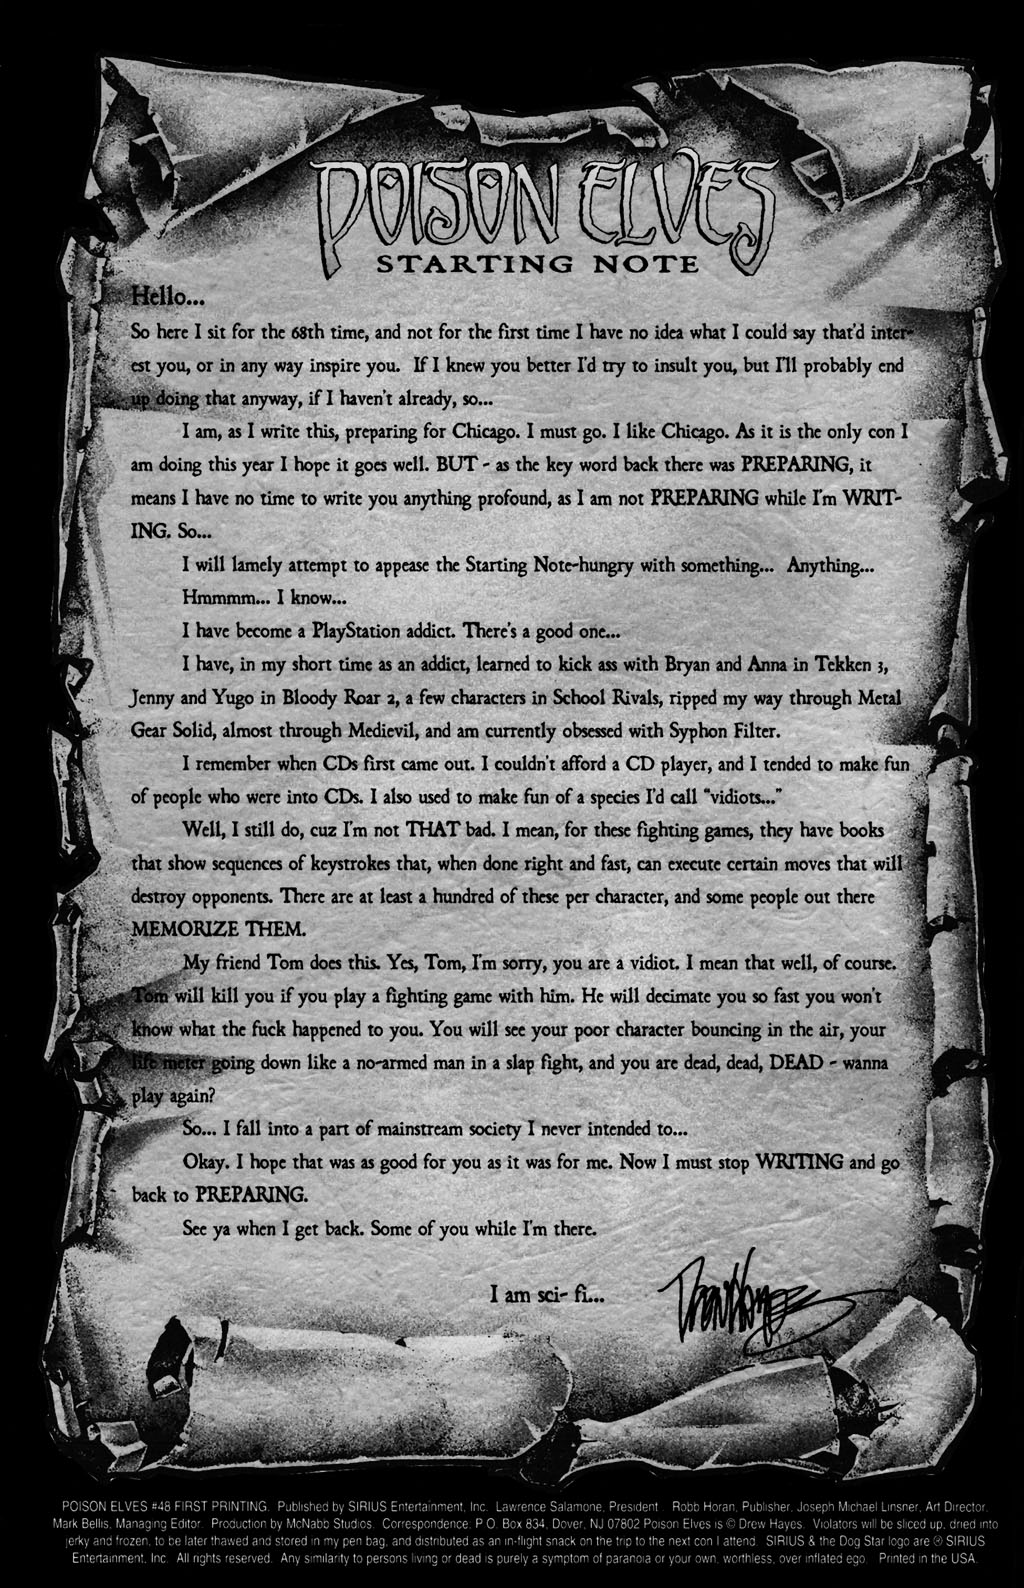 POISON ELVES
STARTING NOTE
Hello...
So here I sit for the 68th time, and not for the first time I have no idea what I could say that'd inter-
est you, or in any way inspire you. If I knew you better I'd try to insult you, but I'll probably end
up doing that anyway, if I haven't already, so...
I am, as I write this, preparing for Chicago. I must go. I like Chicago. As it is the only con I
am doing this year I hope it goes well. BUT - as the key word back there was PREPARING, it
means I have no time to write you anything profound, as I am not PREPARING while I'm WRIT-
ING. So...
I will lamely attempt to appease the Starting Note-hungry with something... Anything...
Hmmmm... I know...
I have become a PlayStation addict. There's a good one...
I have, in my short time as an addict, learned to kick ass with Bryan and Anna in Tekken 3,
Jenny and Yugo in Bloody Roar 2, a few characters in School Rivals, ripped my way through Metal
Gear Solid, almost through Medievil, and am currently obsessed with Syphon Filter.
I remember when CDs first came out. I couldn't afford a CD player, and I tended to make fun
of people who were into CDs. I also used to make fun of a species I'd call "vidiots..."
Well, I still do, cuz I'm not THAT bad. I mean, for these fighting games, they have books
that show sequences of keystrokes that, when done right and fast, can execute certain moves that will
destroy opponents. There are at least a hundred of these per character, and some people out there
MEMORIZE THEM.
My friend Tom does this. Yes, Tom, I'm sorry, you are a vidiot. I mean that well, of course.
Tom will kill you if you play a fighting game with him. He will decimate you so fast you won't
know what the fuck happened to you. You will see your poor character bouncing in the air, your
life meter going down like a no-armed man in a slap fight, and you are dead, dead, DEAD - wanna
play again?
So... I fall into a part of mainstream society I never intended to...
Okay. I hope that was as good for you as it was for me. Now I must stop WRITING and go
back to PREPARING.
See ya when I get back. Some of you while I'm there.
I am sci- fi...
Drew Hayes
POISON ELVES #48 FIRST PRINTING. Published by SIRIUS Entertainment, Inc. Lawrence Salamone, President. Robb Horan, Publisher, Joseph Michael Linsner, Art Director,
Mark Bellis, Managing Editor. Production by McNabb Studios. Correspondence: P.O. Box 834, Dover, NJ 07802 Poison Elves is © Drew Hayes. Violators will be sliced up, dried into
jerky and frozen, to be later thawed and stored in my pen bag, and distributed as an in-flight snack on the trip to the next con I attend. SIRIUS & the Dog Star logo are ® SIRIUS
Entertainment, Inc. All rights reserved. Any similarity to persons living or dead is purely a symptom of paranoia or your own, worthless, over inflated ego. Printed in the USA.